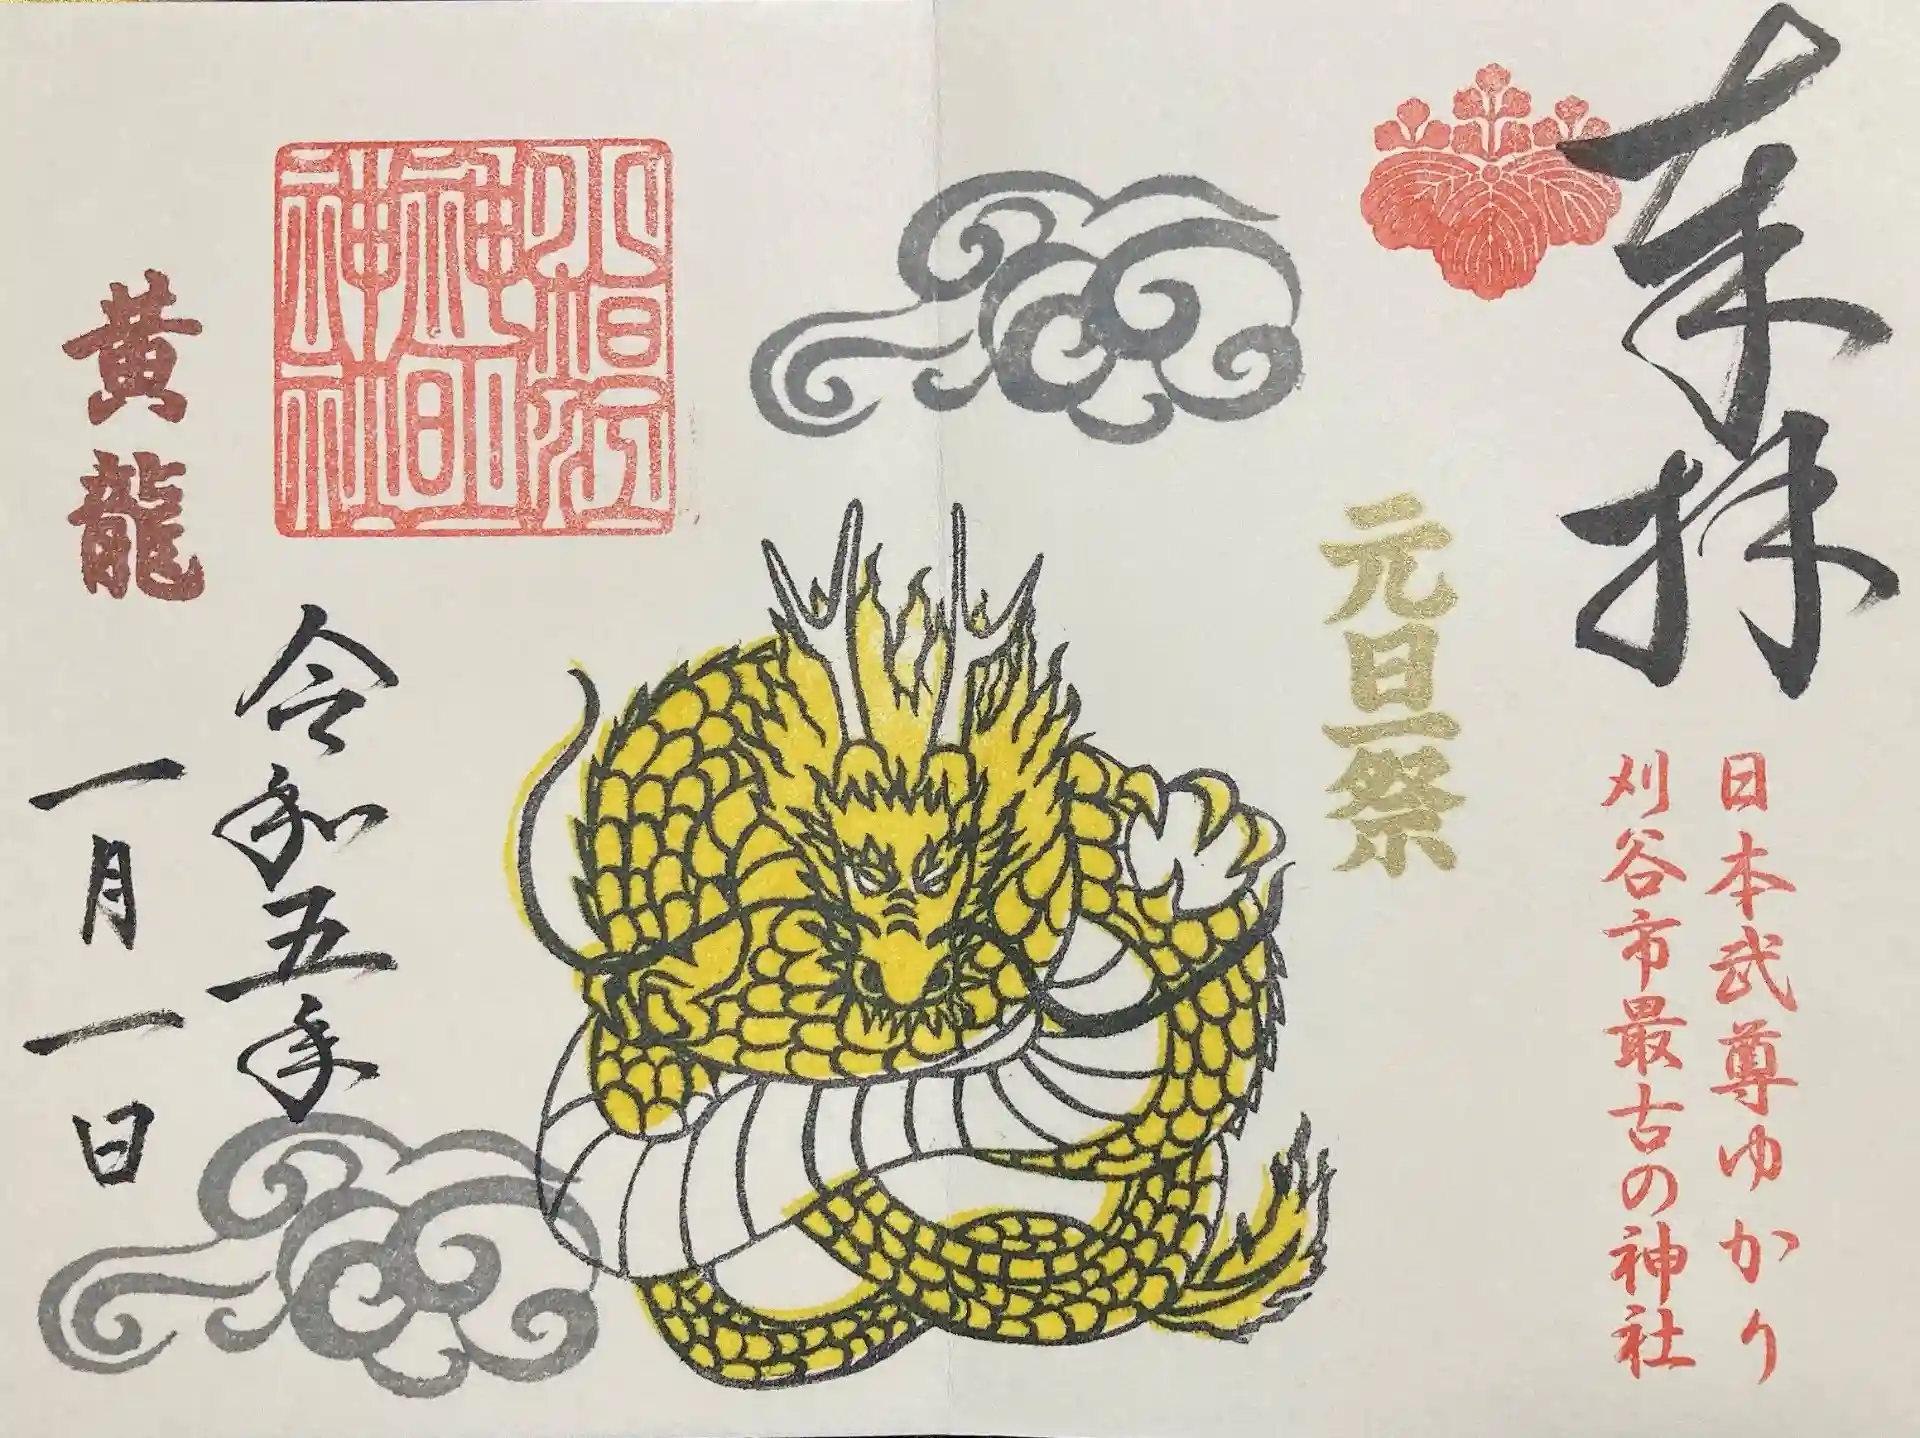 奉拝
日本武尊ゆかり
刈谷市最古の神社
元旦祭
小垣江
神明
神社
令和五年
黄龍
一月一日